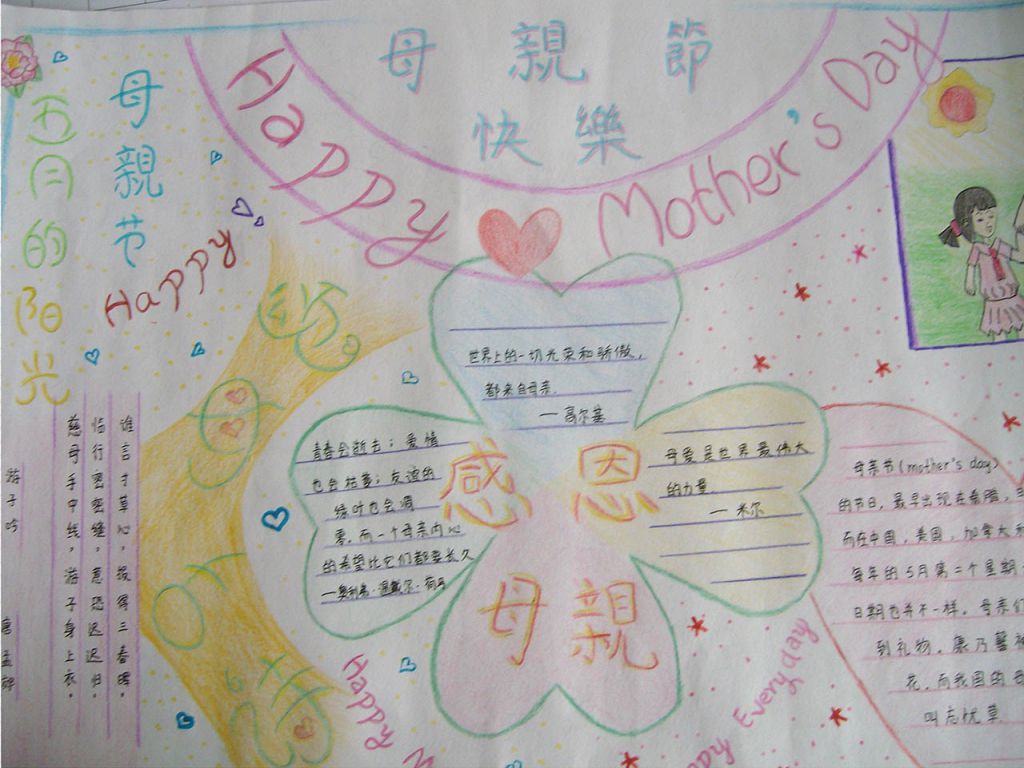 母親節
快樂
Happy Mother's Day
母親节
五月的阳光
Happy
世界上的一切光荣和骄傲，
都来自母亲.
—高尔基
青春会逝去；爱情
也会枯萎；友谊的
绿叶也会凋
零，而一个母亲内心
的希望比它们都要长久
—奥利弗·温戴尔·荷马
母爱是世界最伟大
的力量.
—米尔
感恩
母親
游子吟 唐 孟郊
慈母手中线，游子身上衣，
临行密密缝，意恐迟迟归.
谁言寸草心，报得三春晖.
母亲节(mother's day)
的节日，最早出现在希腊，
而在中国，美国，加拿大和
每年的5月第二个星期
日期也并不一样。母亲们
到礼物，康乃馨被
花，而我国的母
叫忘忧草.
Happy M
ppy Everyday